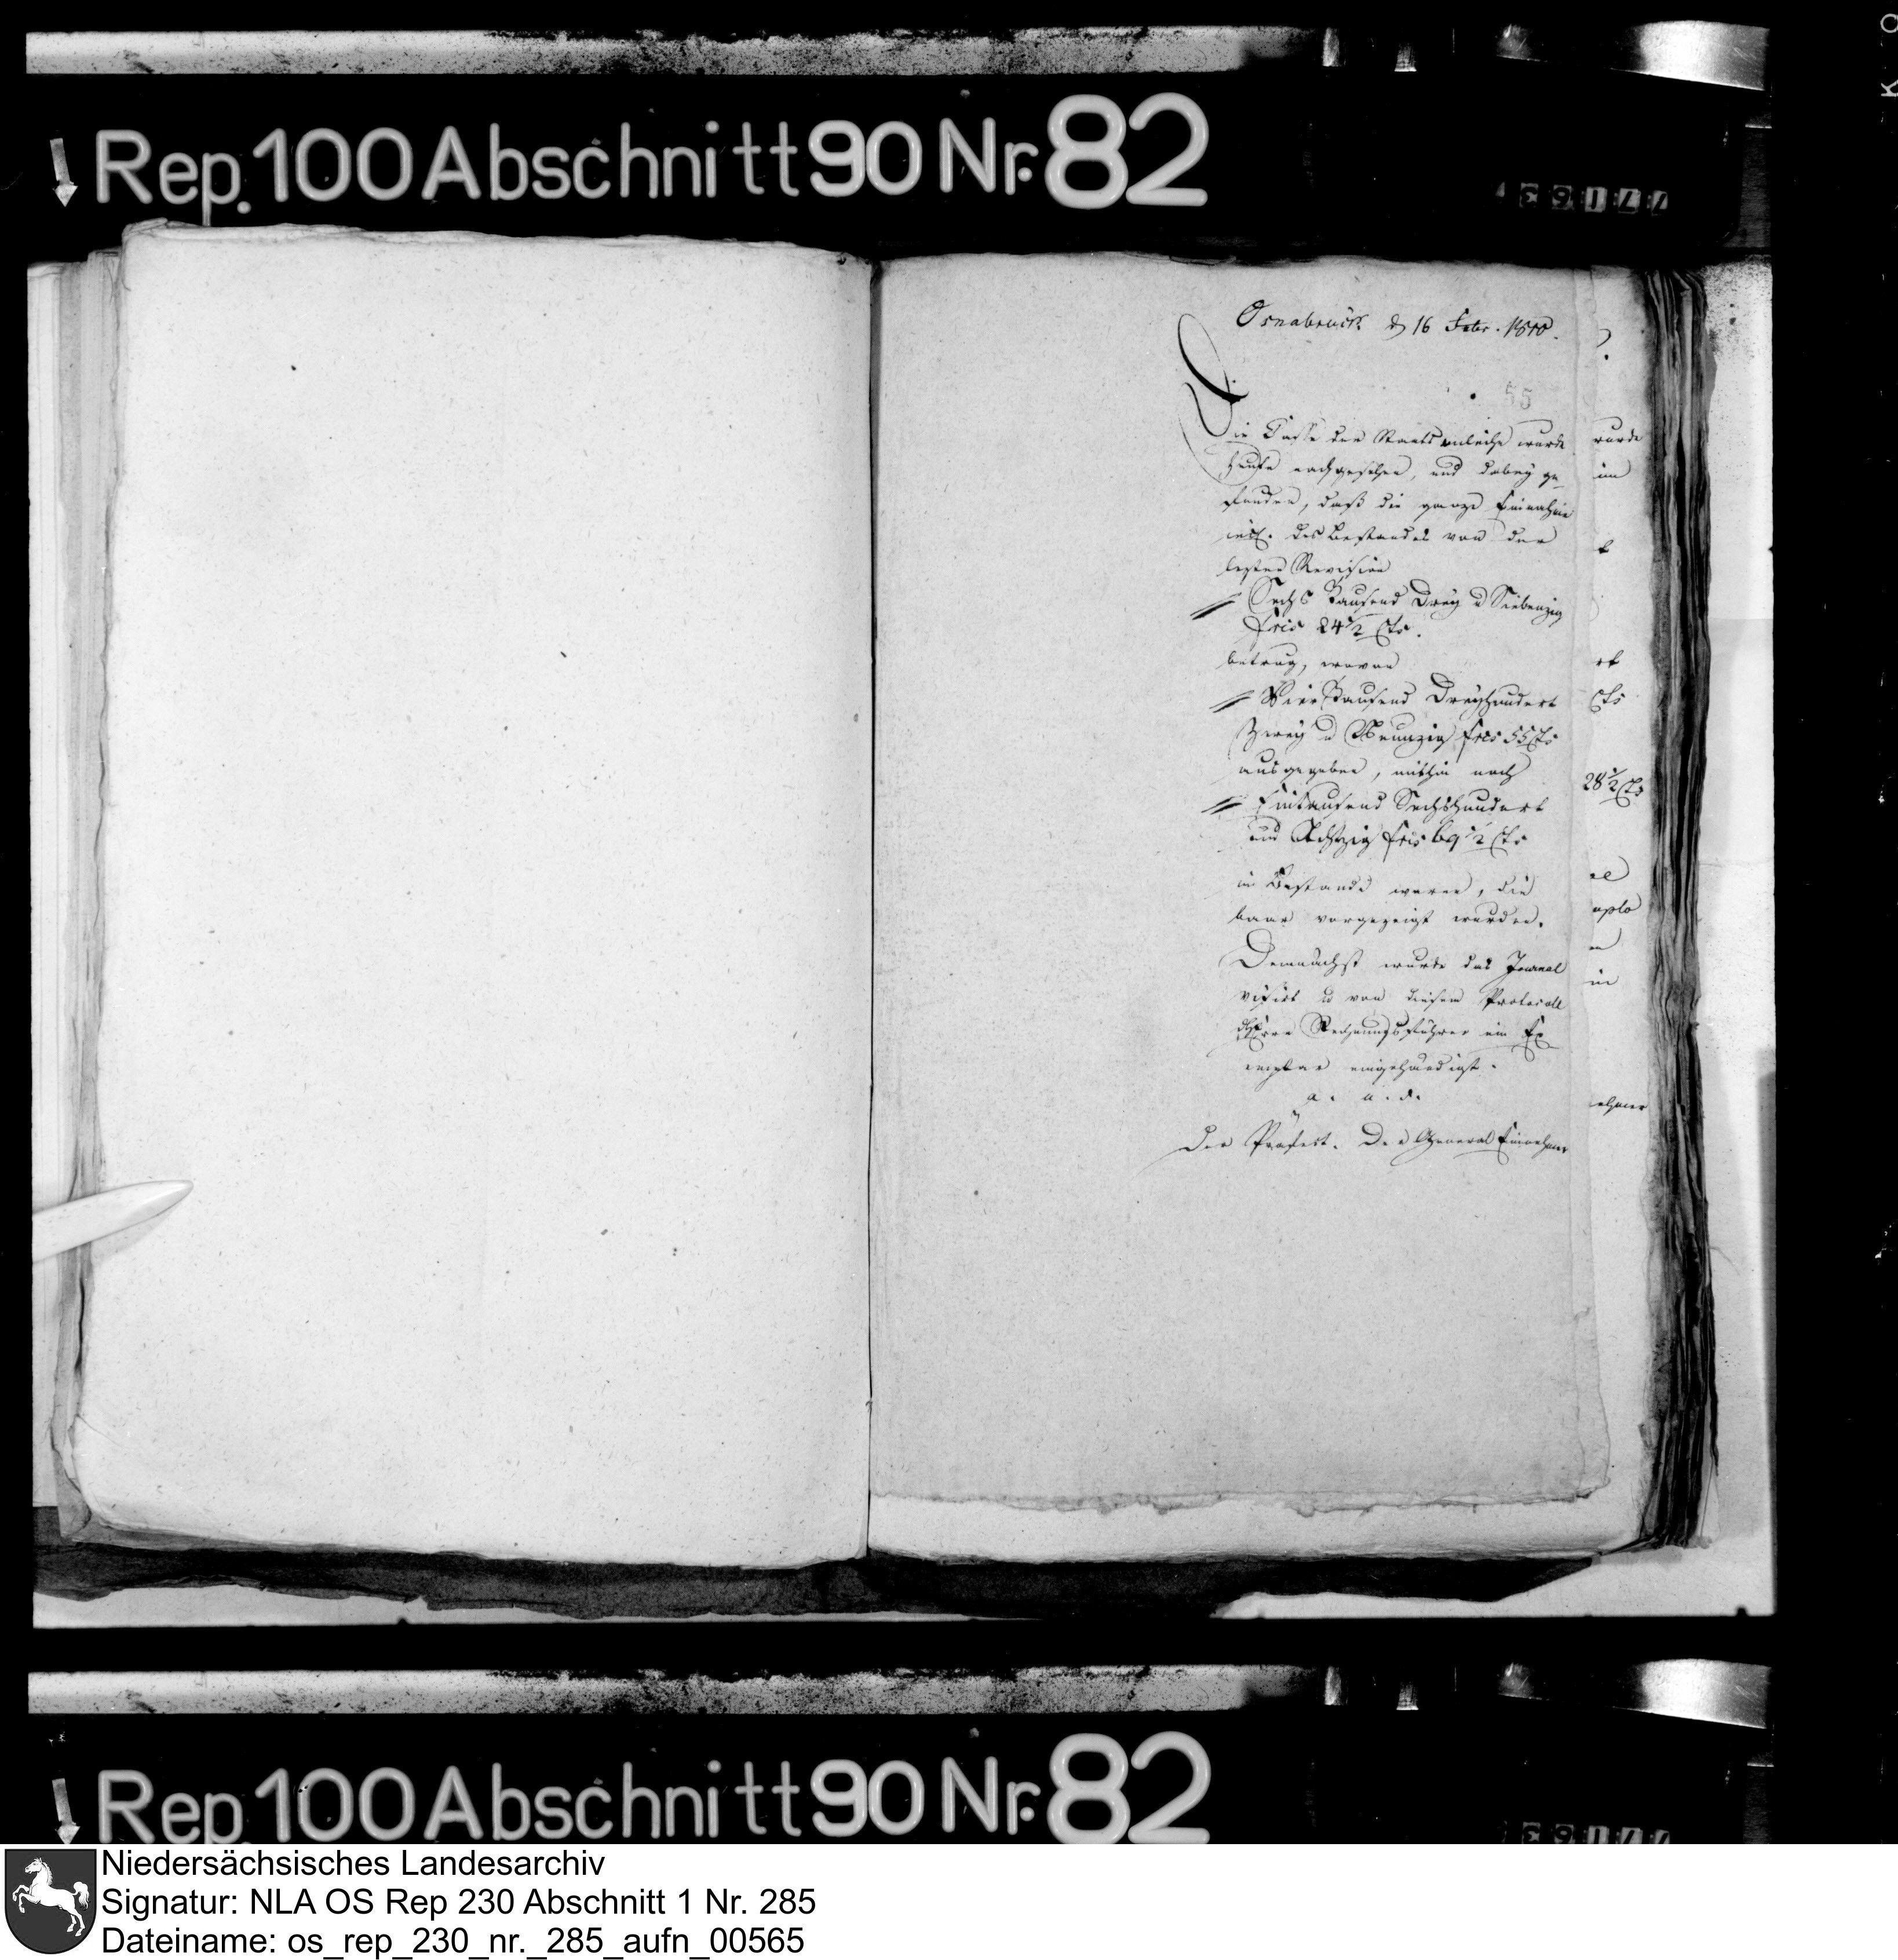 Rep. 100 Abschnitt 90 Nr. 82
Osnabrück d 16 Febr. 1810.
55
Die Casse der Staats anleihe wurde
heute nachgesehen, und dabey ge
funden, daß die ganze Einnahme
incl. des Bestandes von der
letzten Revision
Sechs Tausend Drey u Siebenzig
frcs 24 1/2 Cts.
betrug, wovon
Vier Tausend Dreyhundert
Zwey u Neunzig frcs 55 Cts
ausgegeben, mithin noch
Eintausend Sechshundert
und Achtzig frcs 69 1/2 Cts
in Bestande waren, die
baar vorgezeigt wurden.
Demnächst wurde das Journal
visirt u von diesem Protocoll
Rechnungsführer ein Ex
emplar eingehändigt.
a. u. s.
Der Präfect. Der General Einnehmer
wurde
im
t
Cts
28 1/2 Cts
in
Rep. 100 Abschnitt 90 Nr. 82
Niedersächsisches Landesarchiv
Signatur: NLA OS Rep 230 Abschnitt 1 Nr. 285
Dateiname: os_rep_230_nr._285_aufn_00565